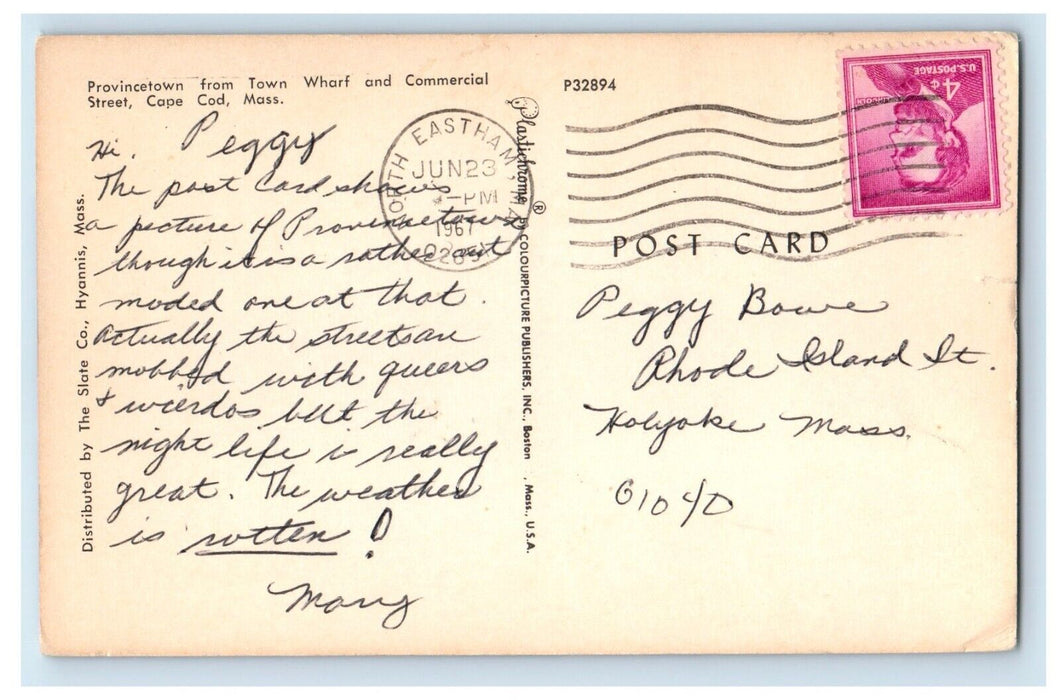 Provincetown from Town Wharf and Commercial
Street, Cape Cod, Mass.
Hi. Peggy
The post card shows
a picture of Provincetown
though it is a rather out
moded one at that.
Actually the streets are
mobbed with queers
& wierdos but the
night life is really
great. The weather
is rotten!
Distributed by The Slate Co., Hyannis, Mass.
NORTH EASTHAM, MA
JUN 23
PM
1967
Plastichrome ® BY COLOURPICTURE PUBLISHERS, INC., Boston, Mass., U.S.A.
P32894
U.S. POSTAGE
4¢
LINCOLN
POST CARD
Peggy Bowe
Rhode Island St.
Holyoke Mass.
01040